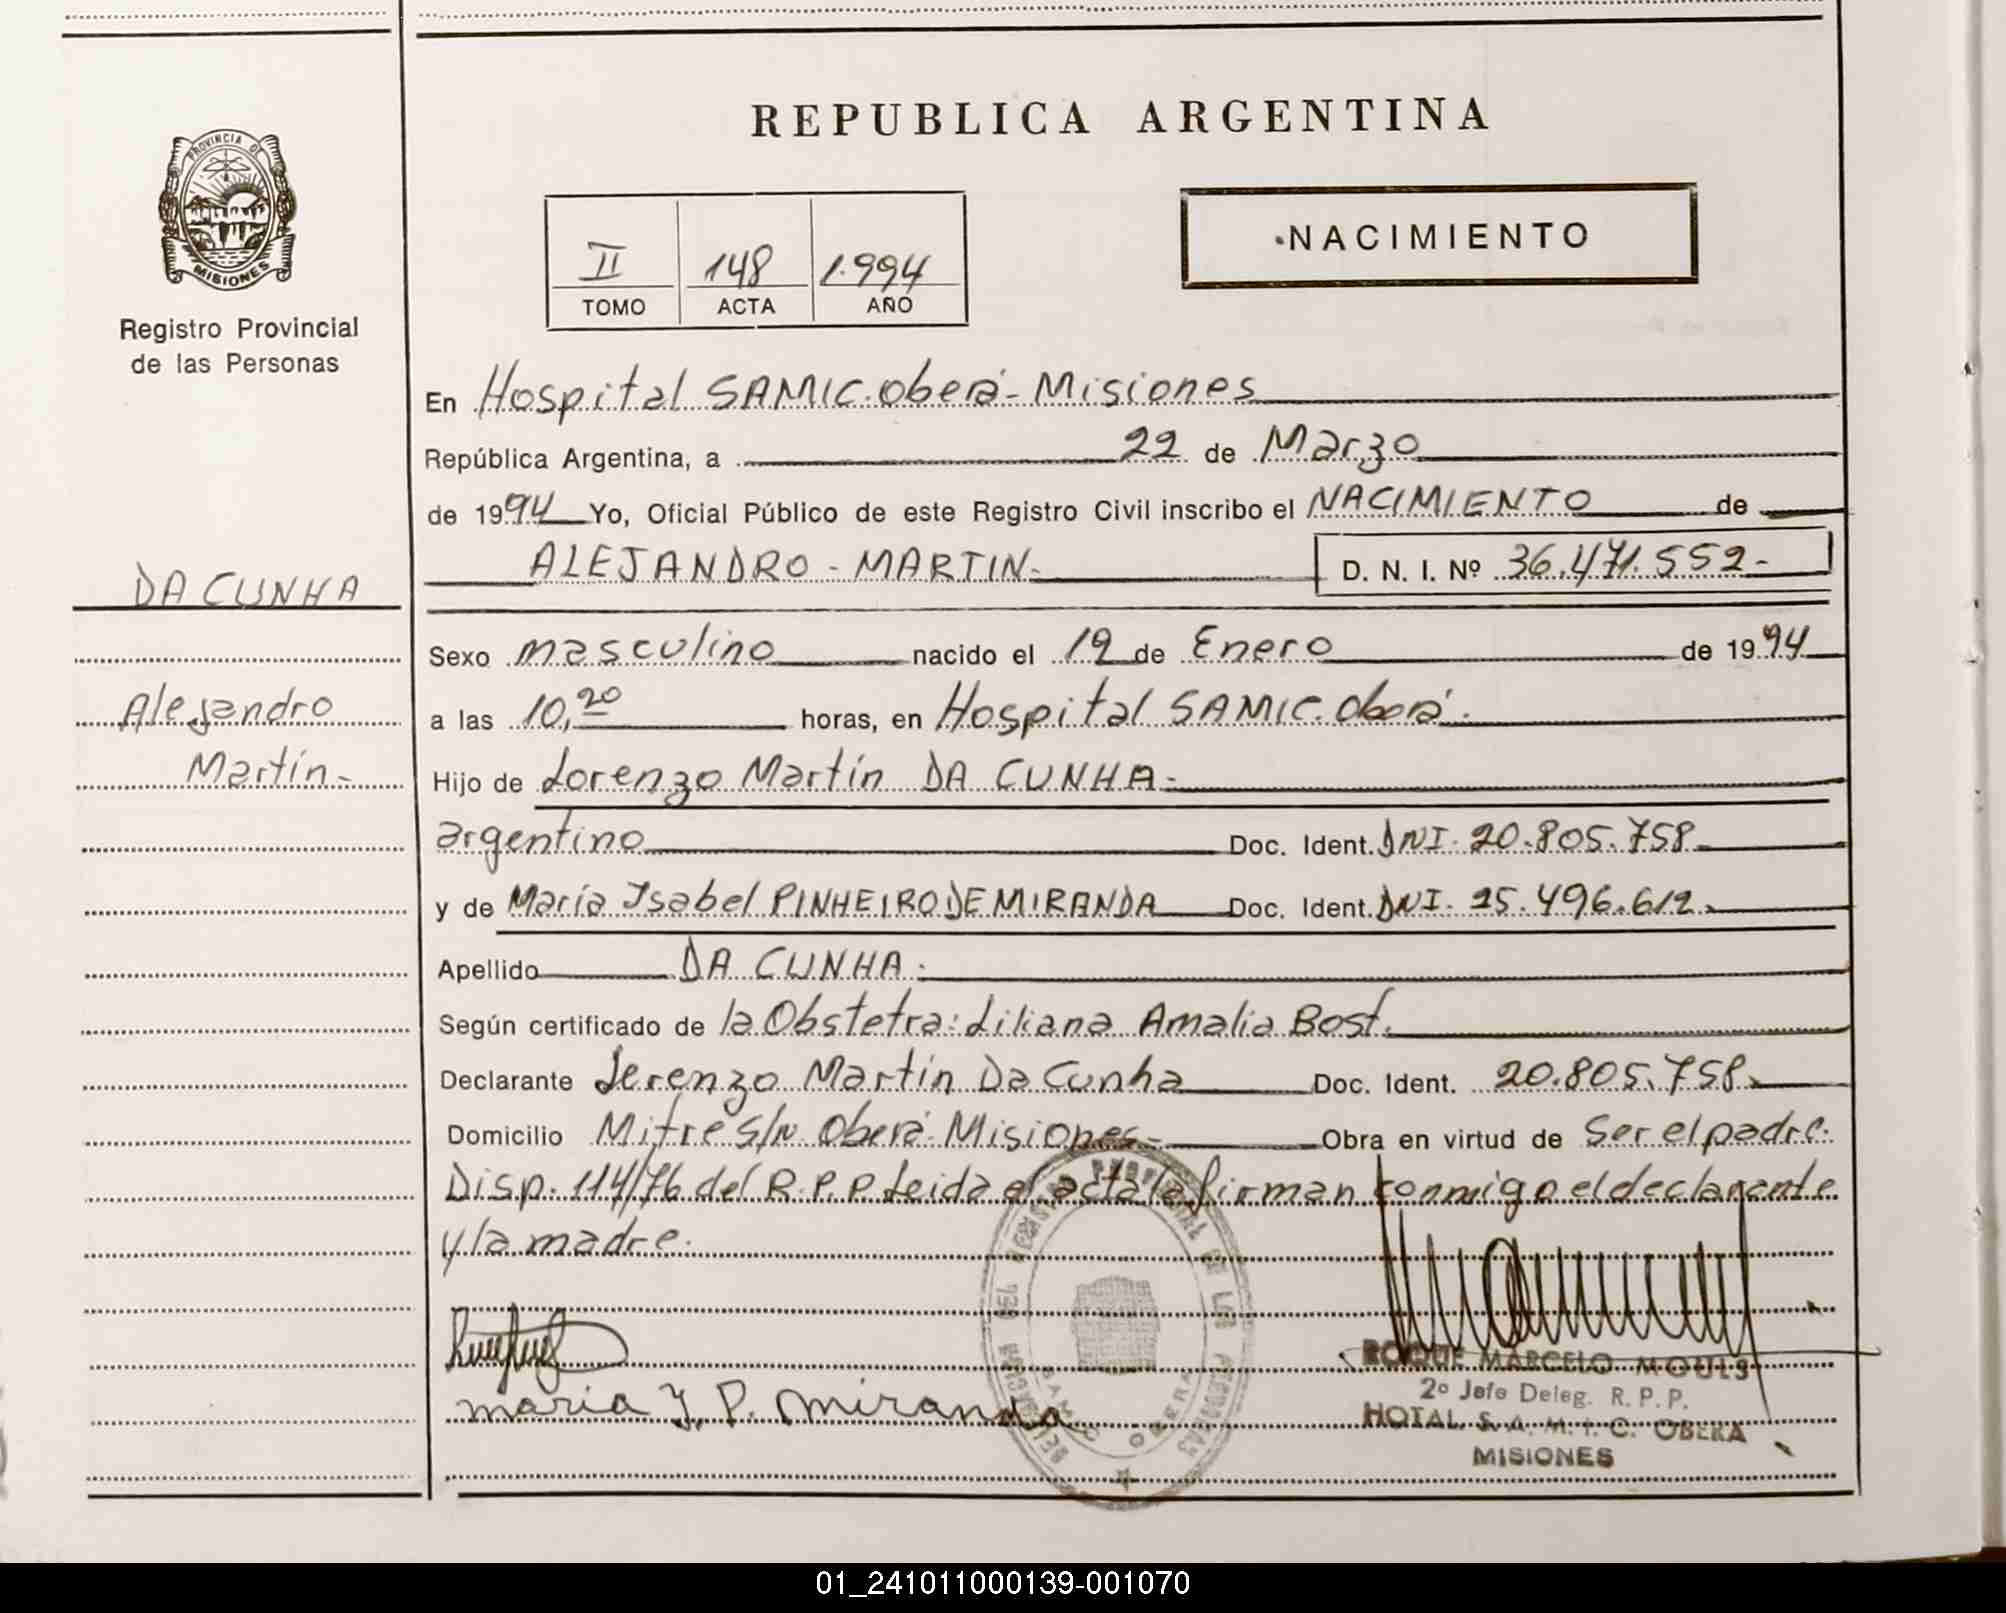 REPUBLICA ARGENTINA
PROVINCIA DE
MISIONES
Registro Provincial
de las Personas
II 148 1.994
TOMO ACTA AÑO
NACIMIENTO
En Hospital SAMIC. Oberá - Misiones
República Argentina, a 22 de Marzo
de 1994 Yo, Oficial Público de este Registro Civil inscribo el NACIMIENTO de
ALEJANDRO - MARTIN.
D. N. I. Nº 36.471.552-
DA CUNHA
Alejandro
Martín-
Sexo masculino nacido el 19 de Enero de 1994
a las 10,20 horas, en Hospital SAMIC. Oberá.
Hijo de Lorenzo Martín DA CUNHA-
argentino Doc. Ident. DNI. 20.805.758
y de María Isabel PINHEIRO DE MIRANDA Doc. Ident. DNI. 25.496.612.
Apellido DA CUNHA.
Según certificado de la Obstetra: Liliana Amalia Bost.
Declarante Lorenzo Martín Da Cunha Doc. Ident. 20.805.758
Domicilio Mitre S/N Oberá - Misiones- Obra en virtud de Ser el padre.
Disp. 114/76 del R.P.P. Leida el acta la firman conmigo el declarante
y la madre.
maria Y. P. miranda
ROQUE MARCELO MOULS
2º Jefe Deleg. R. P. P.
HOTAL S. A. M. I. C. OBERA
MISIONES
01_241011000139-001070